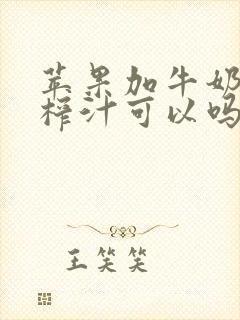 苹果加牛奶
榨汁可以吗
王笑笑